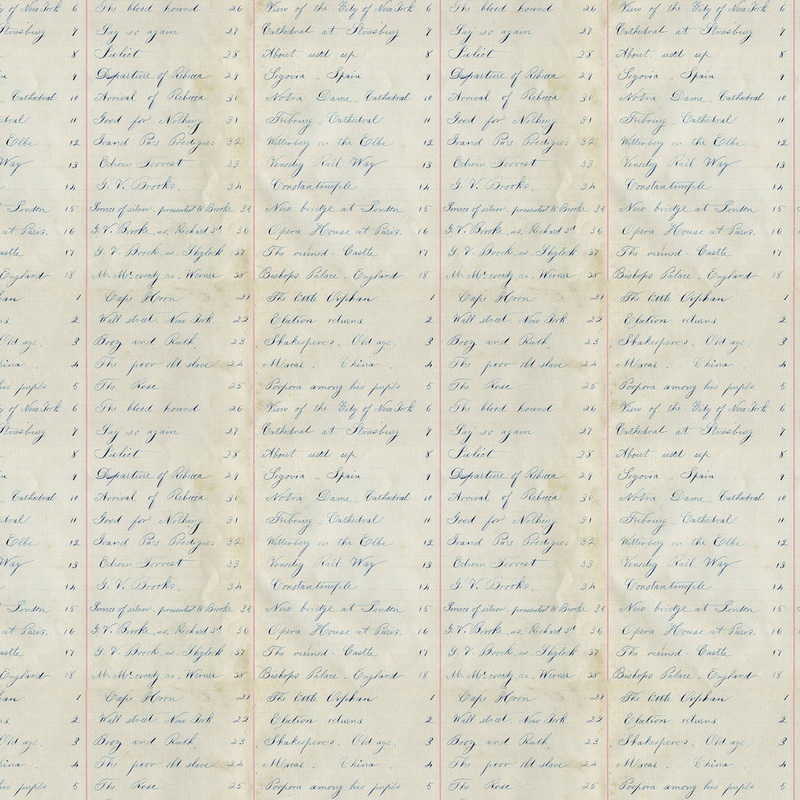 of New York 6 The blood hound 26 View of the City of New York 6 The blood hound 26 View of the City of New York 6
Strasburg 7 Say so again 27 Cathedral at Strasburg 7 Say so again 27 Cathedral at Strasburg 7
8 Juliet 28 About used up 8 Juliet 28 About used up 8
9 Departure of Rebecca 29 Segovia . Spain 9 Departure of Rebecca 29 Segovia . Spain 9
Cathedral 10 Arrival of Rebecca 30 Notra Dame . Cathedral 10 Arrival of Rebecca 30 Notra Dame . Cathedral 10
dral 11 Good for Nothing 31 Fribourg . Cathedral 11 Good for Nothing 31 Fribourg . Cathedral 11
Elbe 12 Grand Pa's Prodigies 32 Wittenberg on the Elbe. 12 Grand Pa's Prodigies 32 Wittenberg on the Elbe. 12
Way 13 Edwin Forrest 33 Rail Way 13 Edwin Forrest 33 Rail Way 13
14 G. V. Brooke. 34 Constantinople 14 G. V. Brooke. 34 Constantinople 14
London 15 Service of silver, presented to Brooke 35 New bridge at London 15 Service of silver, presented to Brooke 35 New bridge at London 15
at Paris. 16 G. V. Brooke, as, Richard 3d 36 Opera House at Paris. 16 G. V. Brooke, as, Richard 3d 36 Opera House at Paris. 16
astle 17 G. V. Brook as Shylock 37 The ruined Castle 17 G. V. Brook as Shylock 37 The ruined Castle 17
England 18 as. Werner 38 Bishops Palace . England 18 as. Werner 38 Bishops Palace . England 18
han 1 Cape Horn 21 The little Orphan 1 Cape Horn 21 The little Orphan 1
s 2 Wall street. New York 22 Election returns. 2 Wall street. New York 22 Election returns. 2
Old age. 3 Booz and Ruth 23 Shakespere's. Old age. 3 Booz and Ruth 23 Shakespere's. Old age. 3
hina 4 The poor old slave 24 Macao. China. 4 The poor old slave 24 Macao. China. 4
his pupils 5 The Rose 25 Porpora among his pupils 5 The Rose 25 Porpora among his pupils 5
of New York 6 The blood hound 26 View of the City of New York 6 The blood hound 26 View of the City of New York 6
Strasburg 7 Say so again 27 Cathedral at Strasburg 7 Say so again 27 Cathedral at Strasburg 7
8 Juliet 28 About used up 8 Juliet 28 About used up 8
9 Departure of Rebecca 29 Segovia . Spain 9 Departure of Rebecca 29 Segovia . Spain 9
Cathedral 10 Arrival of Rebecca 30 Notra Dame . Cathedral 10 Arrival of Rebecca 30 Notra Dame . Cathedral 10
dral 11 Good for Nothing 31 Fribourg . Cathedral 11 Good for Nothing 31 Fribourg . Cathedral 11
Elbe 12 Grand Pa's Prodigies 32 Wittenberg on the Elbe. 12 Grand Pa's Prodigies 32 Wittenberg on the Elbe. 12
Way 13 Edwin Forrest 33 Rail Way 13 Edwin Forrest 33 Rail Way 13
14 G. V. Brooke. 34 Constantinople 14 G. V. Brooke. 34 Constantinople 14
London 15 Service of silver, presented to Brooke 35 New bridge at London 15 Service of silver, presented to Brooke 35 New bridge at London 15
at Paris. 16 G. V. Brooke, as, Richard 3d 36 Opera House at Paris. 16 G. V. Brooke, as, Richard 3d 36 Opera House at Paris. 16
astle 17 G. V. Brook as Shylock 37 The ruined Castle 17 G. V. Brook as Shylock 37 The ruined Castle 17
England 18 as. Werner 38 Bishops Palace . England 18 as. Werner 38 Bishops Palace . England 18
han 1 Cape Horn 21 The little Orphan 1 Cape Horn 21 The little Orphan 1
s 2 Wall street. New York 22 Election returns. 2 Wall street. New York 22 Election returns. 2
Old age. 3 Booz and Ruth 23 Shakespere's. Old age. 3 Booz and Ruth 23 Shakespere's. Old age. 3
hina 4 The poor old slave 24 Macao. China. 4 The poor old slave 24 Macao. China. 4
his pupils 5 The Rose 25 Porpora among his pupils 5 The Rose 25 Porpora among his pupils 5